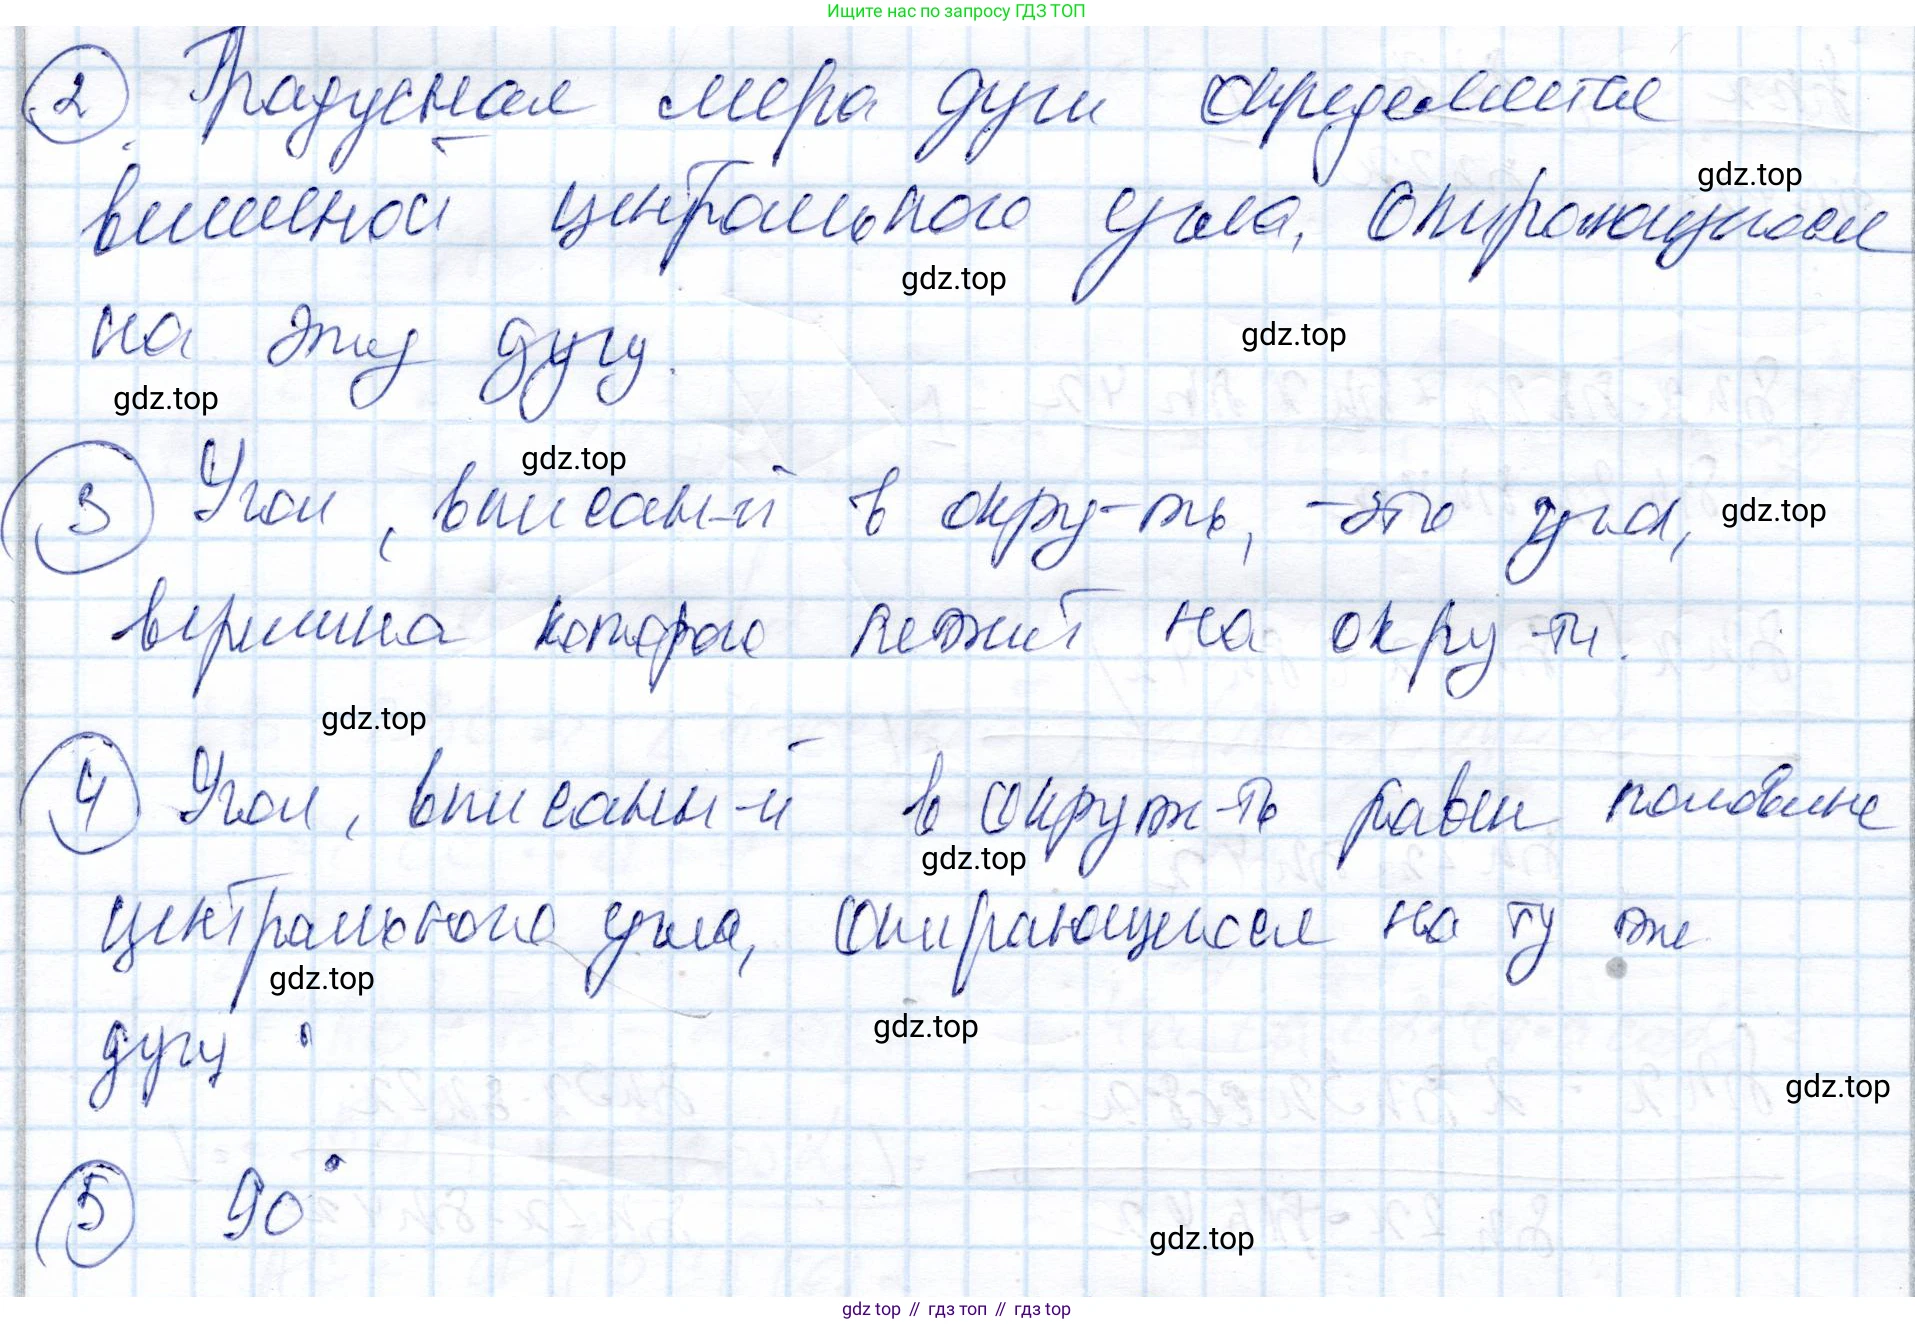 Ищите нас по запросу ГДЗ ТОП
2 Градусная мера дуги определяется
gdz.top
величиной центрального угла, опирающегося
gdz.top
на эту дугу.
gdz.top
gdz.top
gdz.top
3 Угол, вписан-й в окру-ть, - это угол,
gdz.top
вершина которого лежит на окру-ти.
gdz.top
4 Угол, вписанн-й в окруж-ть равен половине
gdz.top
центрального угла, опирающегося на ту же
gdz.top
дугу.
gdz.top
gdz.top
5 90°
gdz.top
gdz top // гдз топ // гдз top